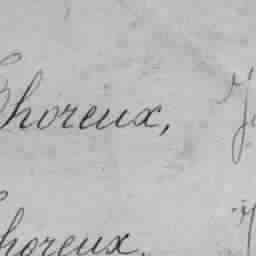 Thoreux,
Thoreux.